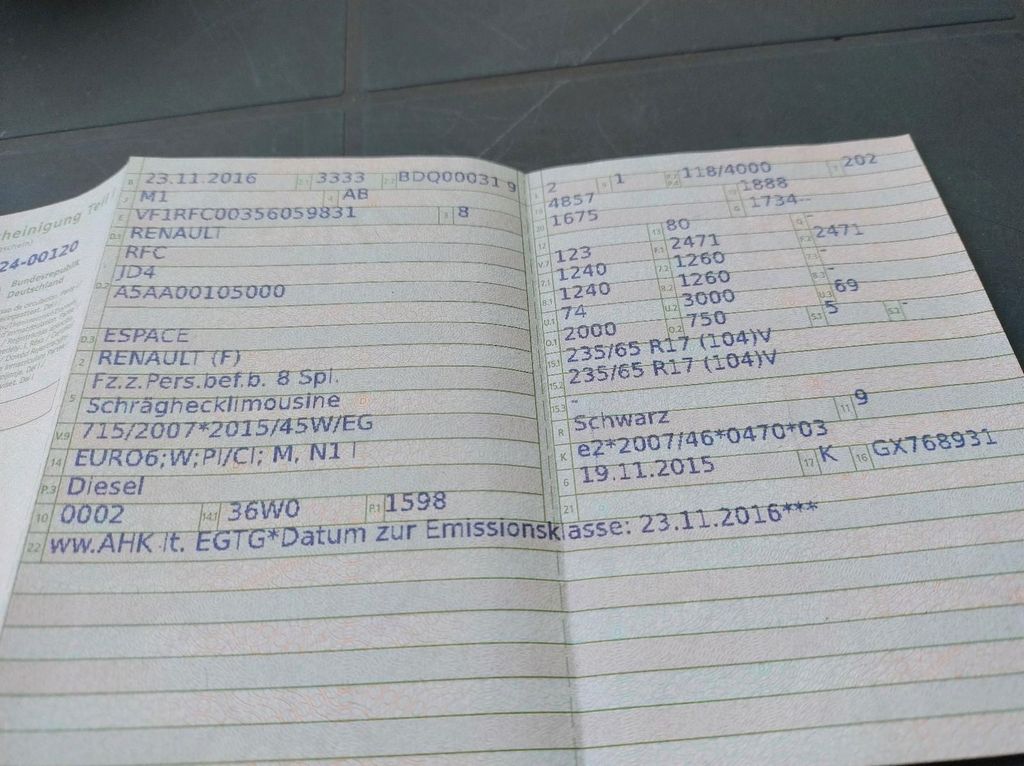 heinigung Teil I
24-00120
Bundesrepublik
Deutschland
B 23.11.2016 2.1 3333 2.2 BDQ00031 9
J M1 4 AB
E VF1RFC00356059831 3 8
D.1 RENAULT
RFC
D.2 JD4
A5AA00105000
D.3 ESPACE
2 RENAULT (F)
5 Fz.z.Pers.bef.b. 8 Spl.
Schräghecklimousine
V.9 715/2007*2015/45W/EG
14 EURO6;W;PI/CI; M, N1 I
P.3 Diesel
10 0002 14.1 36W0 P.1 1598
L 2 9 1 P.2 P.4 118/4000 T 202
18 4857 19 1888
20 1675 G 1734--
12 - 13 80 Q -
V.7 123 F.1 2471 F.2 2471
7.1 1240 7.2 1260 7.3 -
8.1 1240 8.2 1260 8.3 -
U.1 74 U.2 3000 U.3 69
O.1 2000 O.2 750 S.1 5 S.2 -
15.1 235/65 R17 (104)V
15.2 235/65 R17 (104)V
15.3 -
R Schwarz 11 9
K e2*2007/46*0470*03
6 19.11.2015 17 K 16 GX768931
21
22 ww.AHK lt. EGTG*Datum zur Emissionsklasse: 23.11.2016***